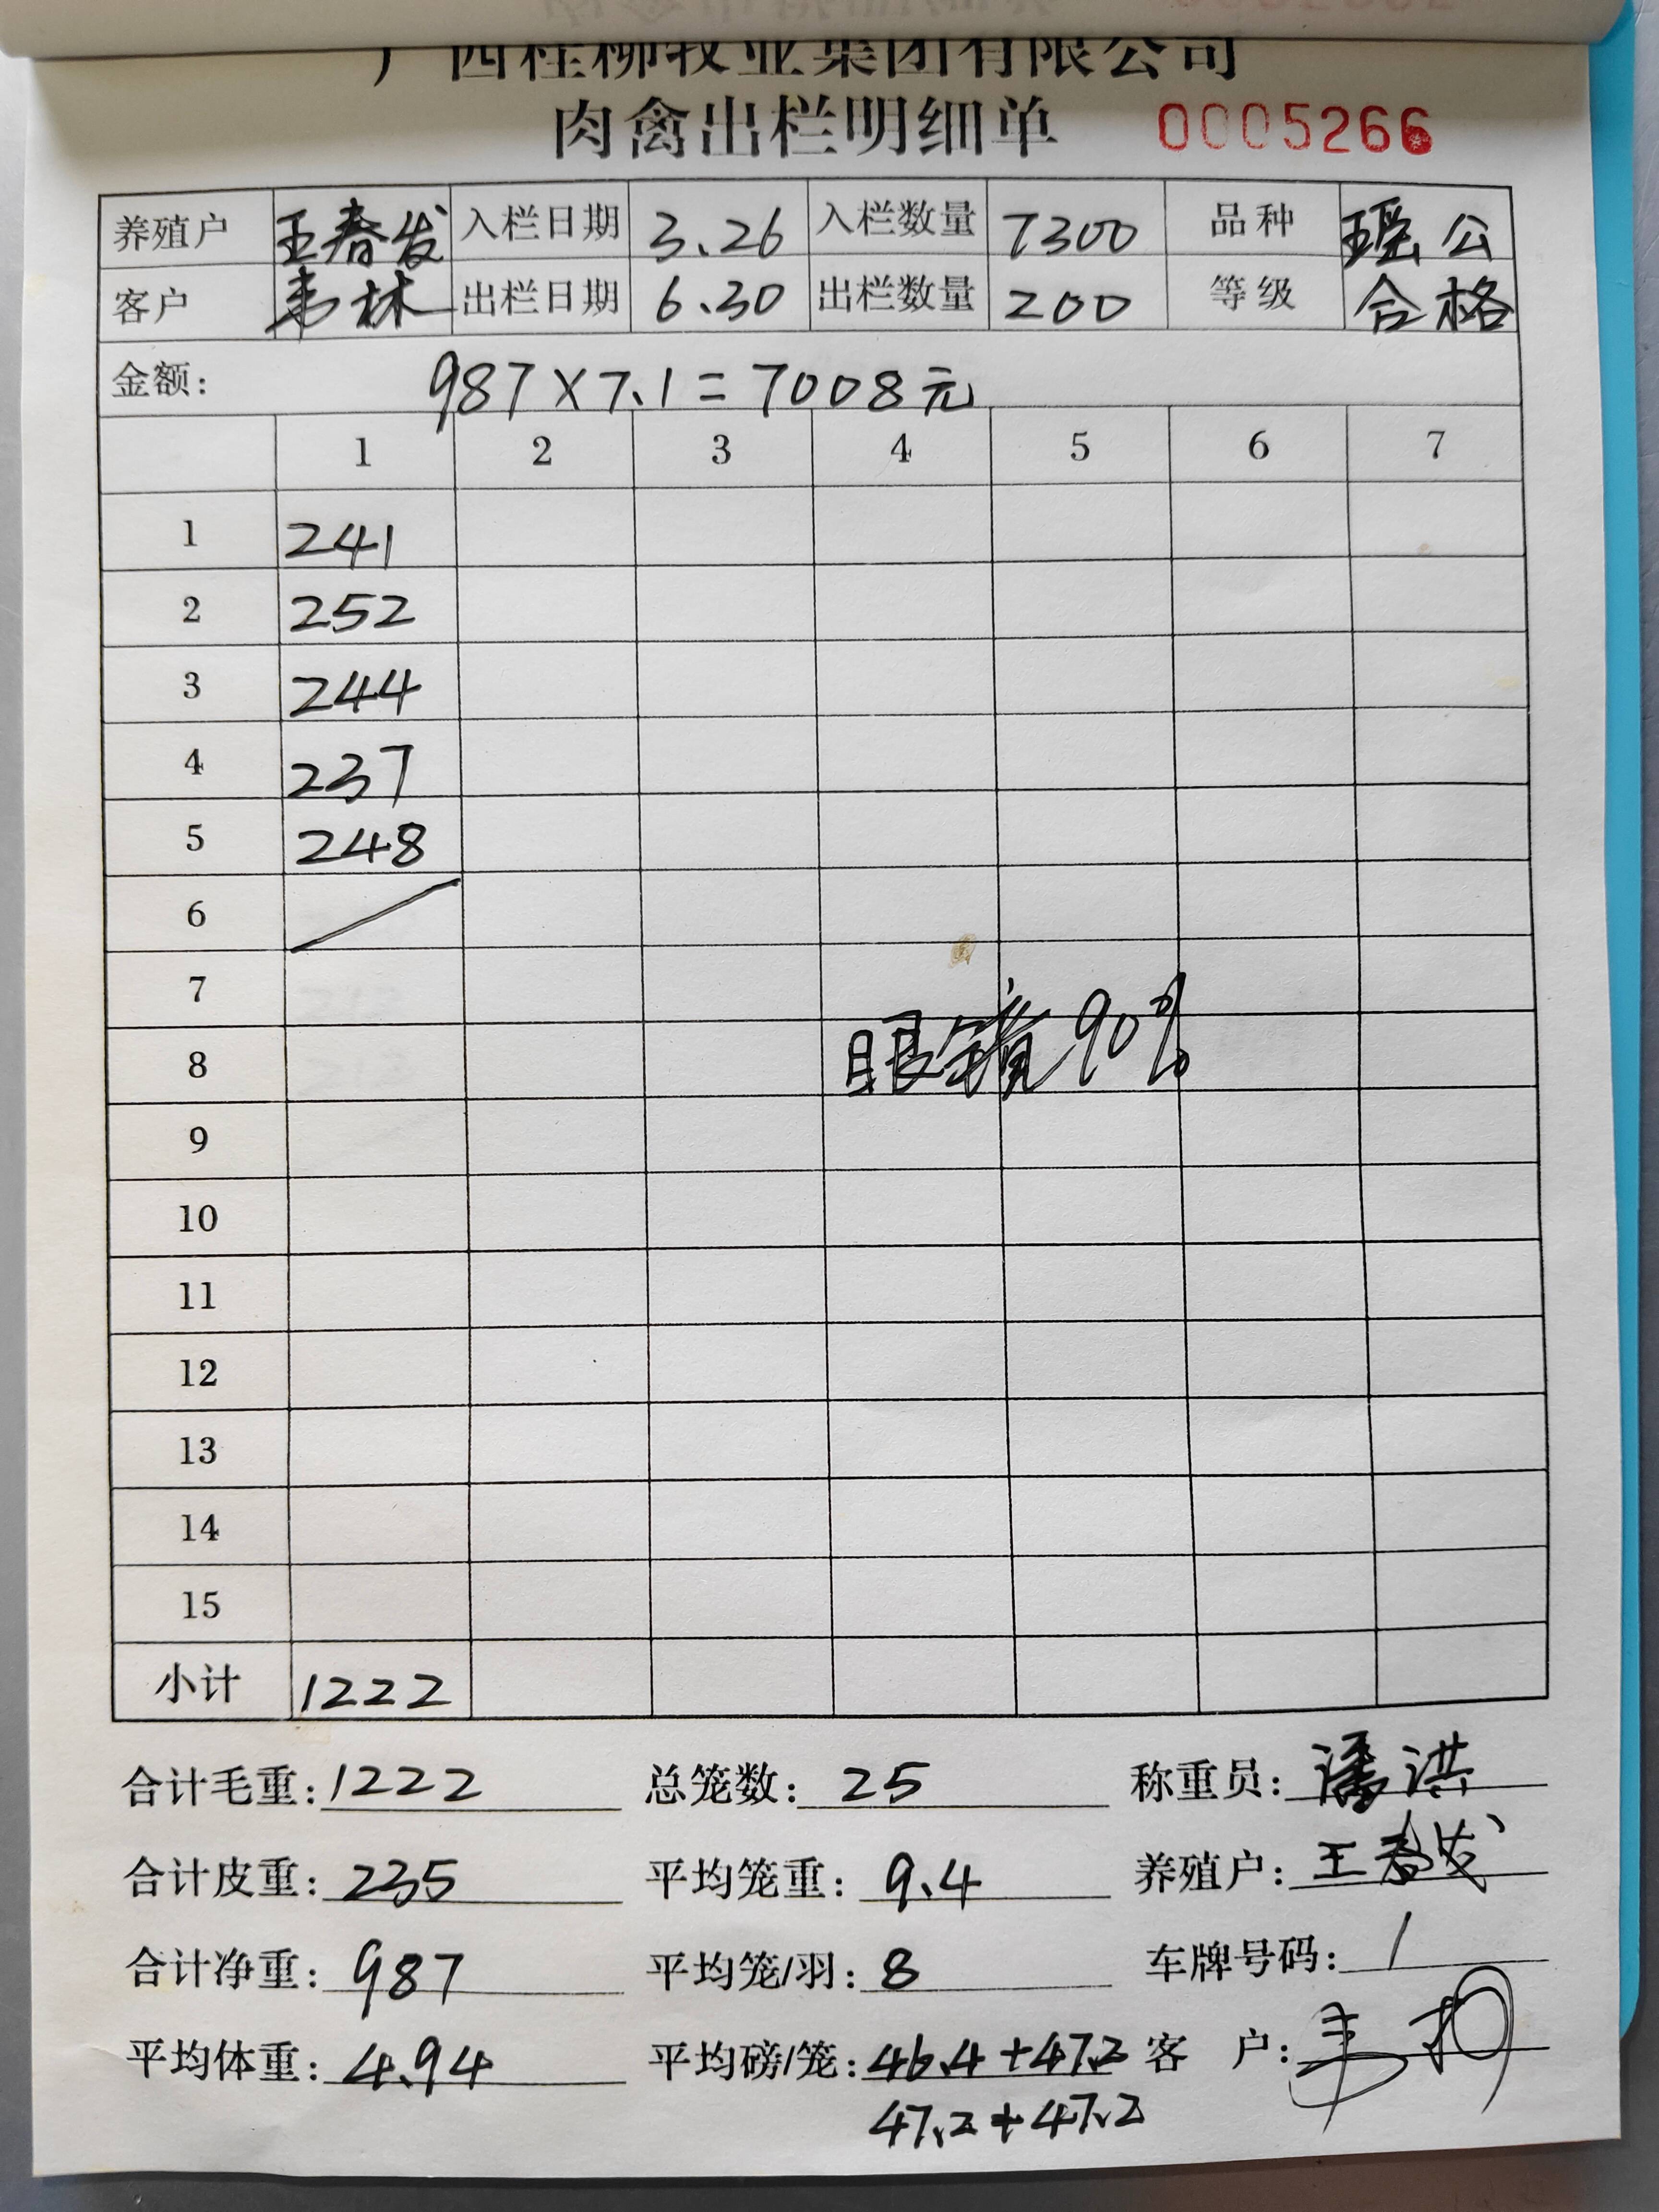 广西桂柳牧业集团有限公司
肉禽出栏明细单 0005266
养殖户 王春发 入栏日期 3.26 入栏数量 7300 品种 瑶公
客户 韦林 出栏日期 6.30 出栏数量 200 等级 合格
金额: 987×7.1=7008元
1 2 3 4 5 6 7
1 241
2 252
3 244
4 237
5 248
6
7
8 眼镜90%
9
10
11
12
13
14
15
小计 1222
合计毛重: 1222 总笼数: 25 称重员: 潘洪
合计皮重: 235 平均笼重: 9.4 养殖户: 王春发
合计净重: 987 平均笼/羽: 8 车牌号码: /
平均体重: 4.94 平均磅/笼: 46.4+47.2 客户: 韦
47.2+47.2